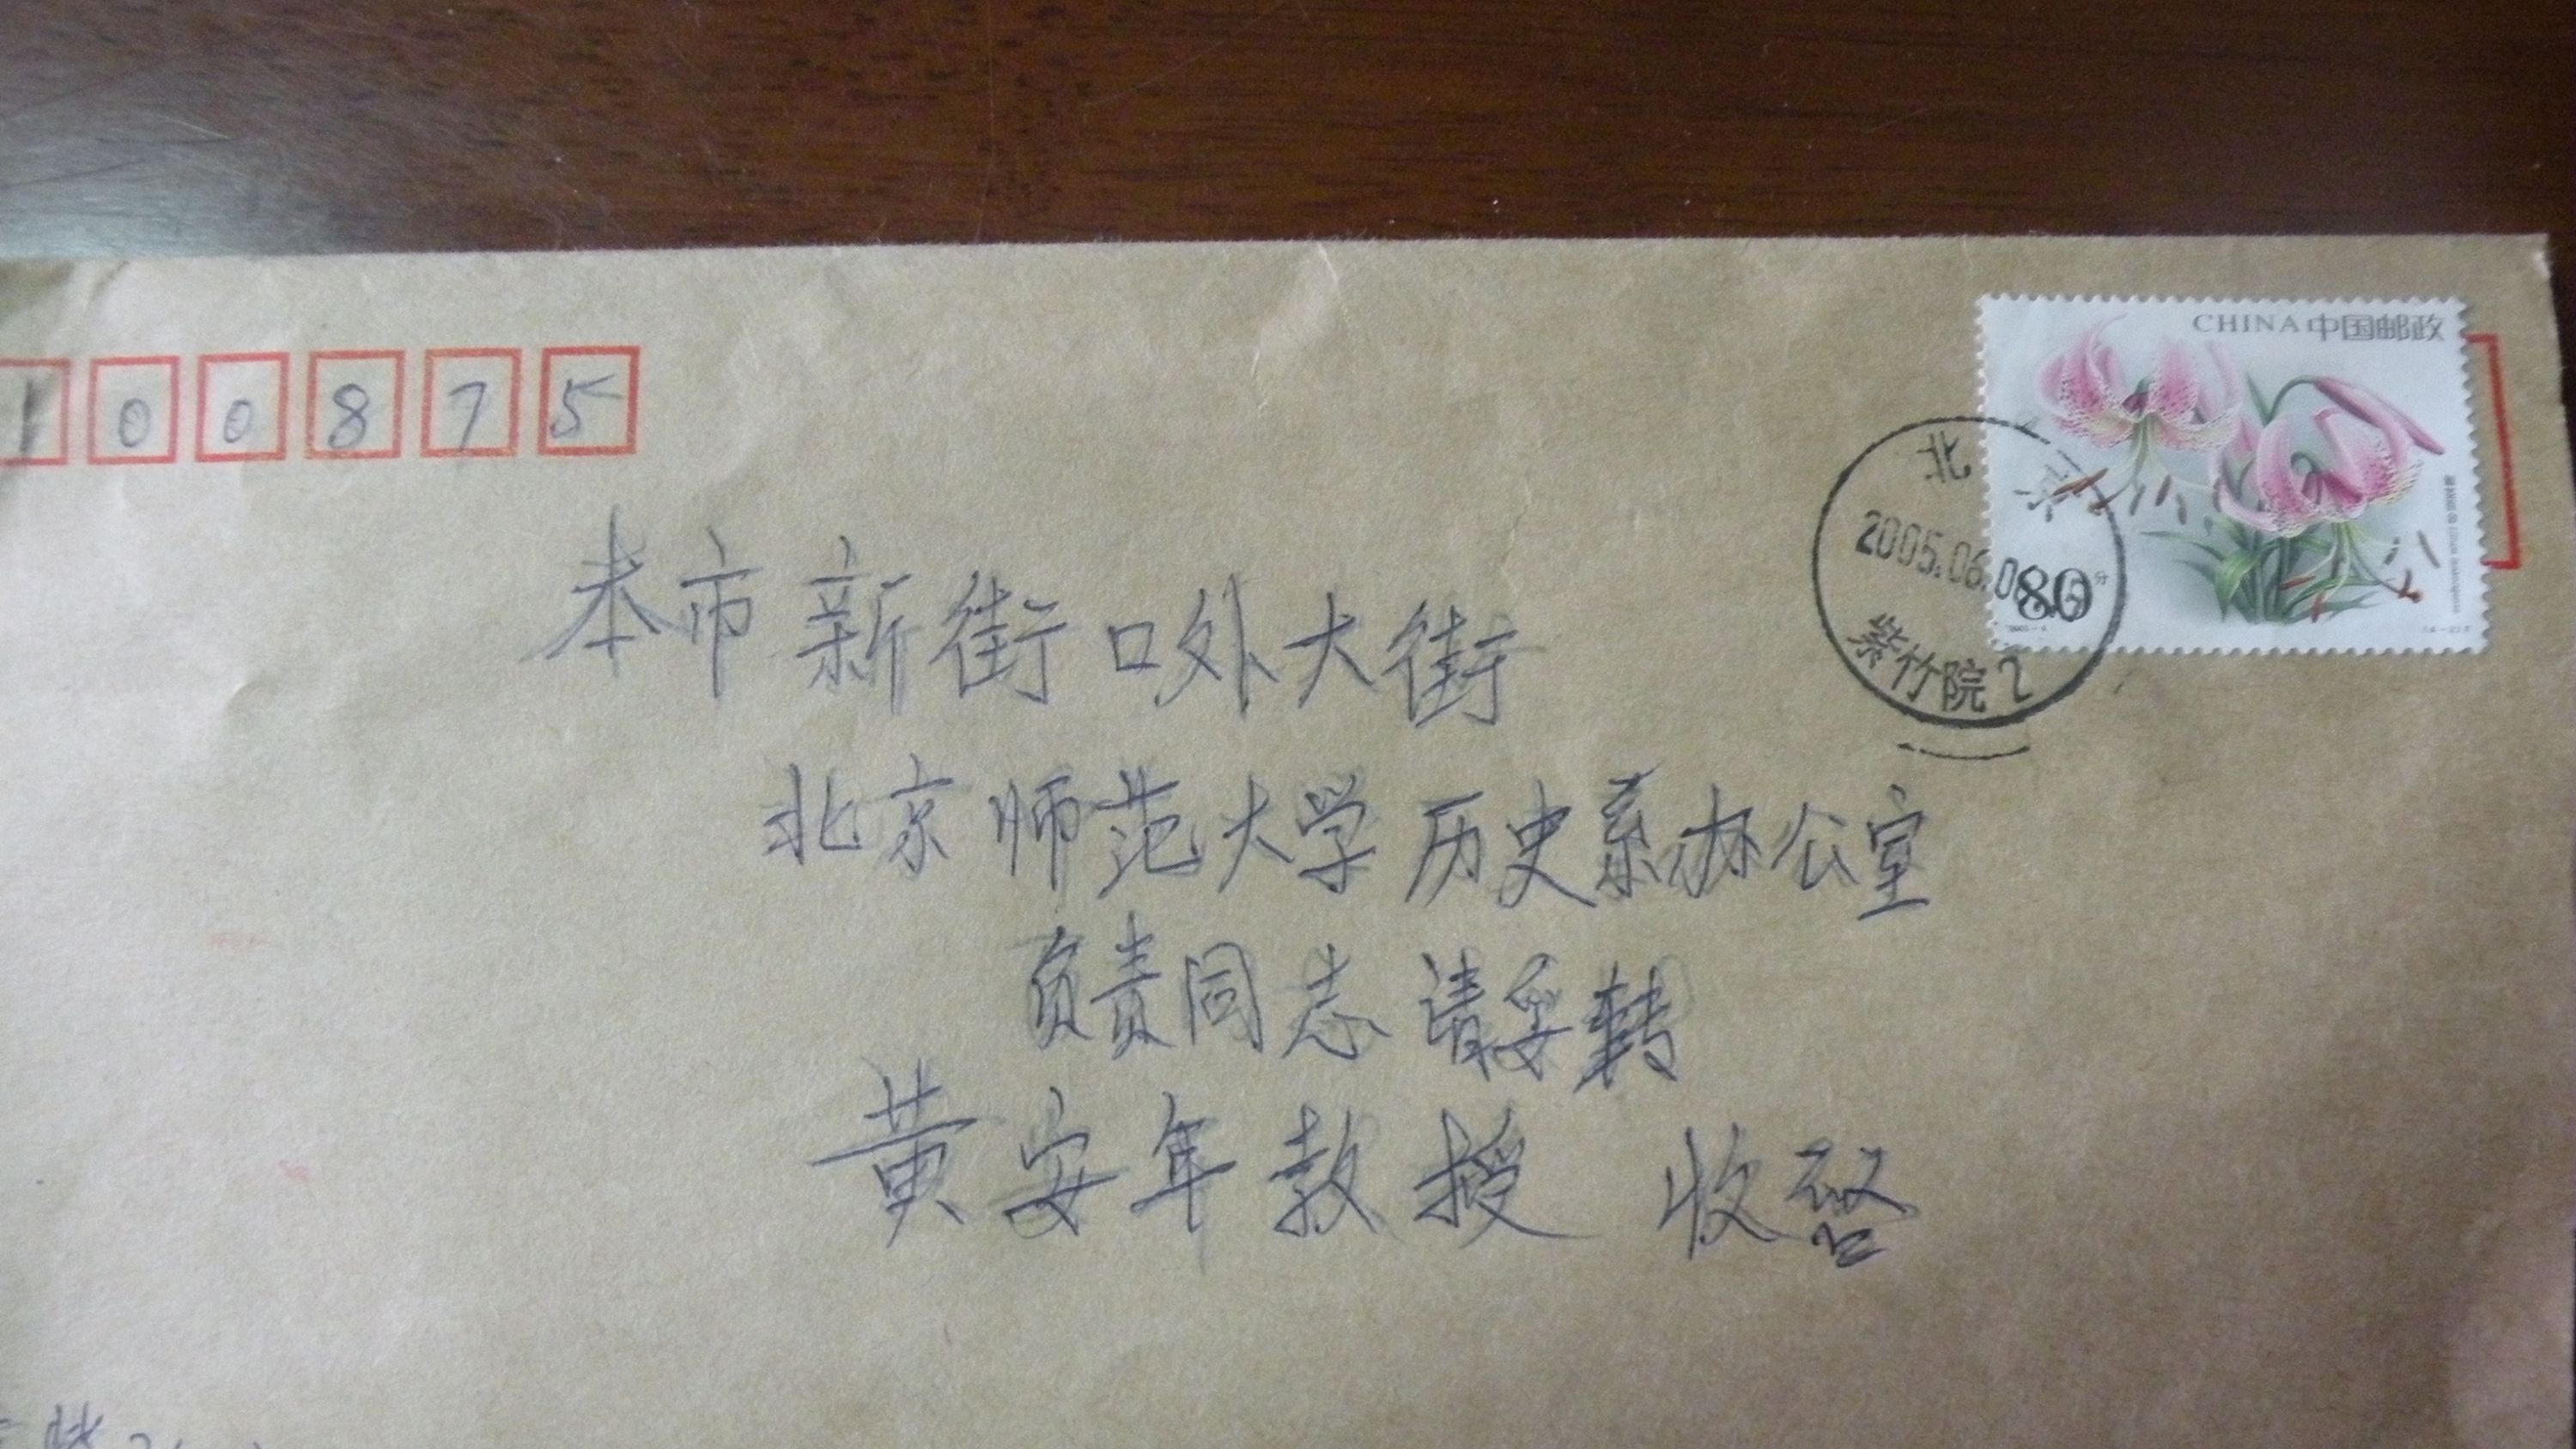 CHINA 中国邮政
100875
北京
2005.06.0
80分
紫竹院2
本市新街口外大街
北京师范大学历史系办公室
负责同志请妥转
黄安年教授 收启